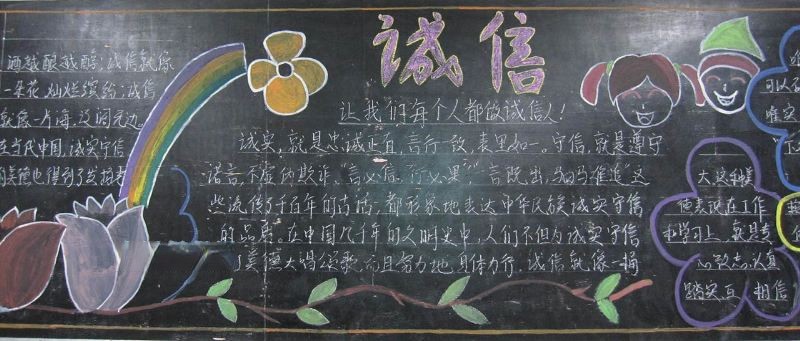 诚信
让我们每个人都做诚信人！
诚实，就是忠诚正直，言行一致，表里如一。守信，就是遵守
诺言，不虚伪欺诈。“言必信，行必果”，“一言既出，驷马难追”这
些流传了千百年的古话，都形象地表达中华民族诚实守信
的品质。在中国几千年的文明史中，人们不但为诚实守信
美德大唱颂歌，而且努力地身体力行。诚信就像一捅
酒越酿越醇；诚信就像
一朵花，灿烂缤纷；诚信
就像一片海
在当代中国，诚实守信
的美德也得到了发扬
大这种美
德表现在工作
和学习上，就是专
心致志，认真
踏实，互相信
可以
唯实